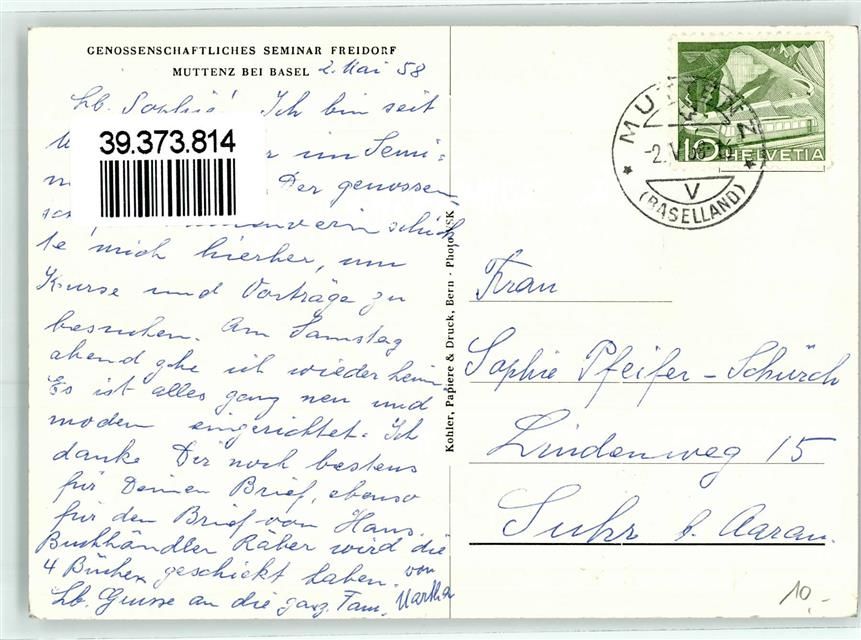 GENOSSENSCHAFTLICHES SEMINAR FREIDORF
MUTTENZ BEI BASEL 2. Mai 58
Lb. Sophie! Ich bin seit
im Semi=
39.373.814
Der genossen-
schick
te mich hierher, um
Kurse und Vorträge zu
besuchen. Am Samstag
abend gehe ich wieder heim.
Es ist alles ganz neu und
modern eingerichtet. Ich
danke Dir noch bestens
für Deinen Brief, ebenso
für den Brief von Hans.
Buchhändler Räber wird die
4 Bücher geschickt haben.
Lb. Grüsse an die ganz. Fam. von Martha
Kohler, Papiere & Druck, Bern · Photo VSK
MUTTENZ
-2.V.58
V
(BASELLAND)
10 HELVETIA
Frau
Sophie Pfeifer-Schürch
Lindenweg 15
Suhr b. Aarau.
10.-